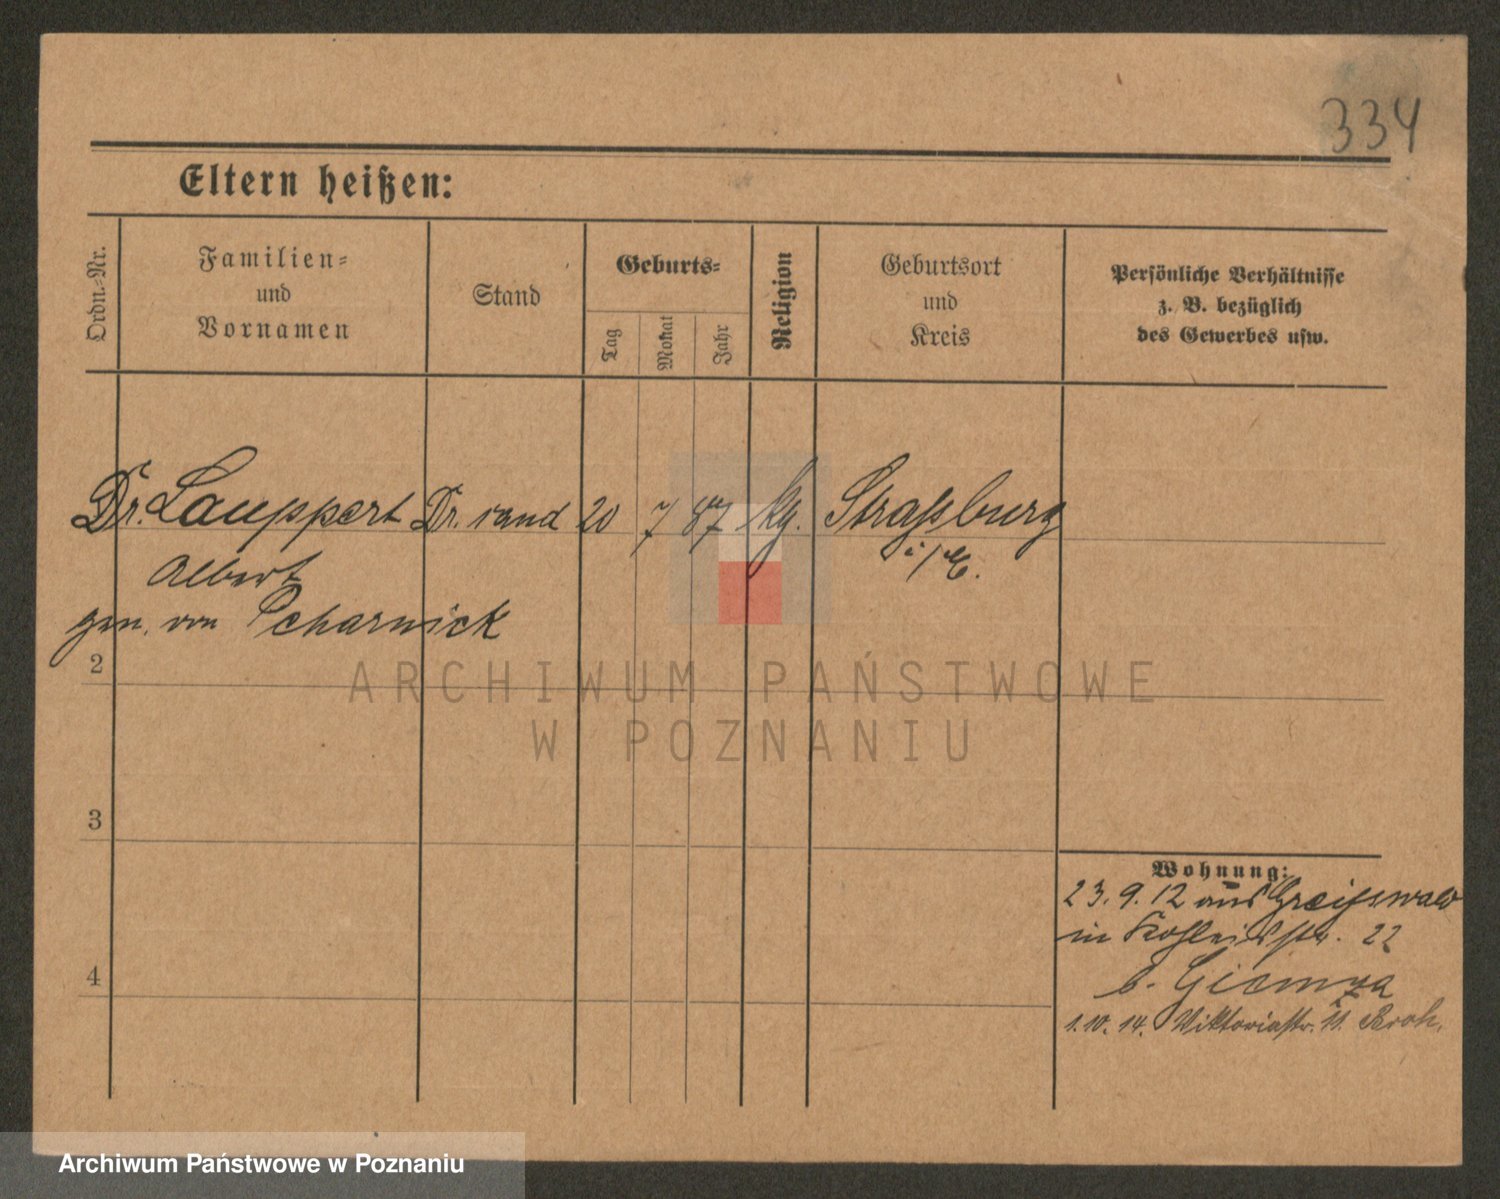 334
Eltern heißen:
Ordn.-Nr.
Familien-
und
Vornamen
Stand
Geburts-
Tag
Monat
Jahr
Religion
Geburtsort
und
Kreis
Persönliche Verhältnisse
z. B. bezüglich
des Gewerbes usw.
Dr. Lauppert Dr. cand 20 7 87 kg. Straßburg
i/E.
Albert
gen. von
2
3
4
ARCHIWUM PAŃSTWOWE
W POZNANIU
Wohnung:
23. 9. 12 aus Greifswald
in str. 22
b.
1. 10. 14. Viktoriastr. 11.
Archiwum Państwowe w Poznaniu